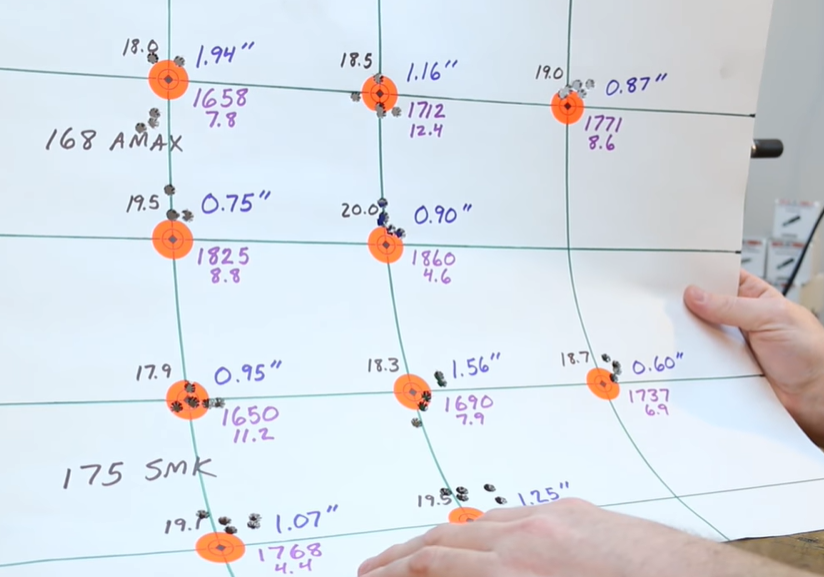 18.0 1.94"
1658
7.8
18.5 1.16"
1712
12.4
19.0 0.87"
1771
8.6
168 AMAX
19.5 0.75"
1825
8.8
20.0 0.90"
1860
4.6
17.9 0.95"
1650
11.2
18.3 1.56"
1690
7.9
18.7 0.60"
1737
6.9
175 SMK
19.1 1.07"
1768
4.4
19.5 1.25"